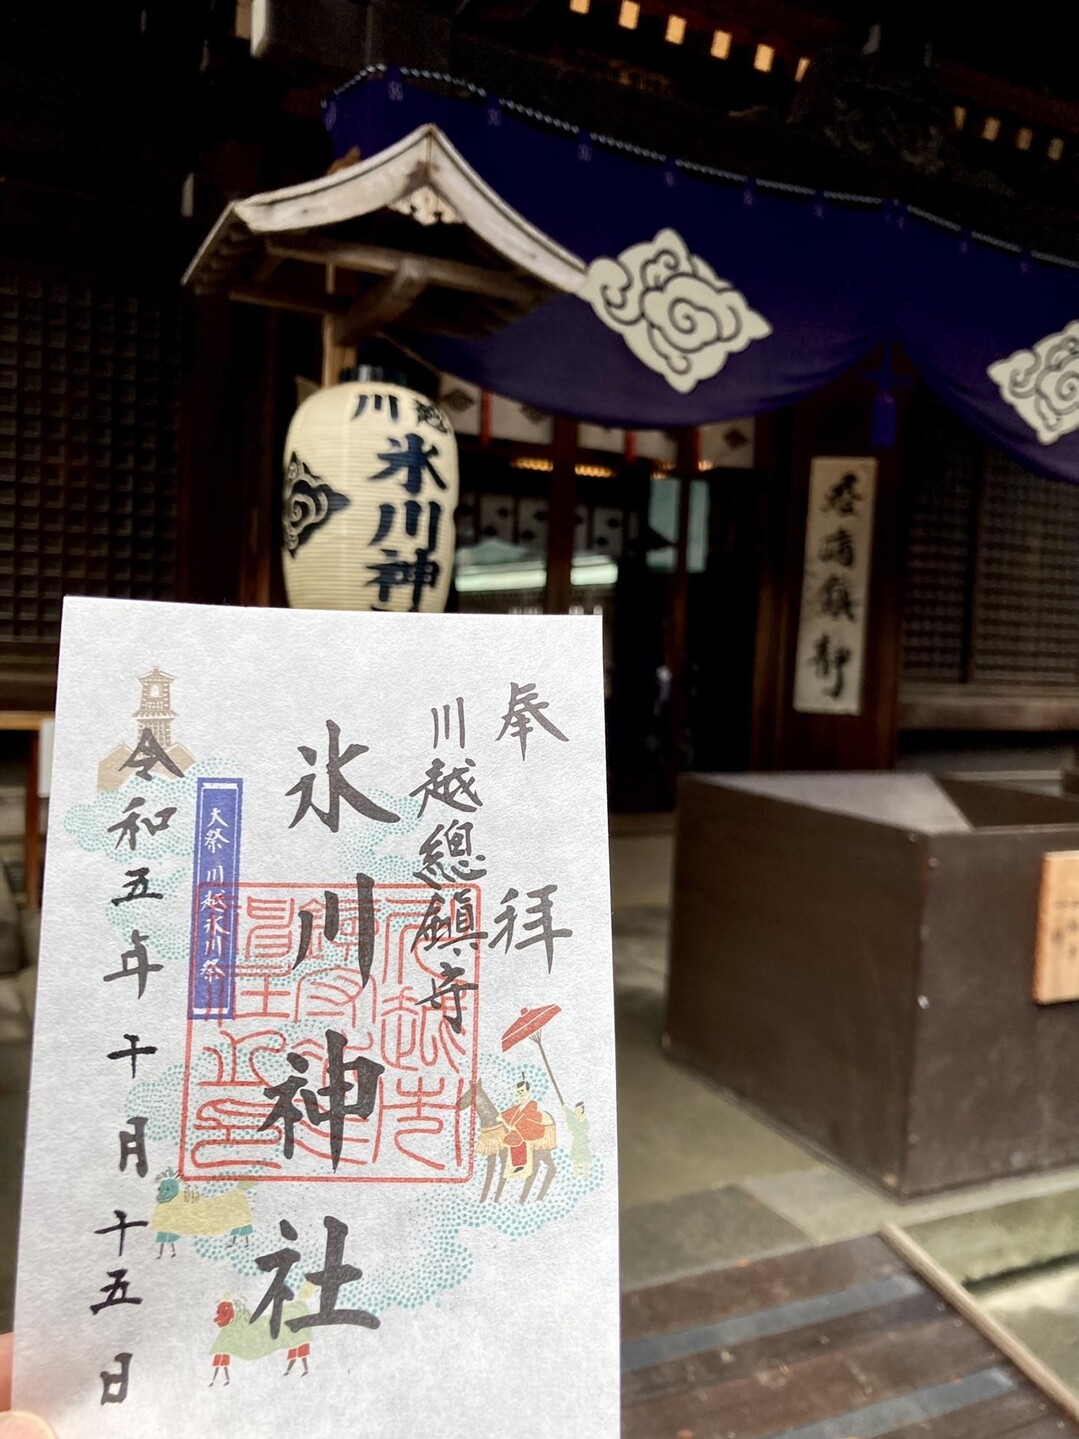 川越
氷川神
疫病鎮静
奉拝
川越總鎮守
氷川神社
大祭 川越氷川祭
令和五年十月十五日